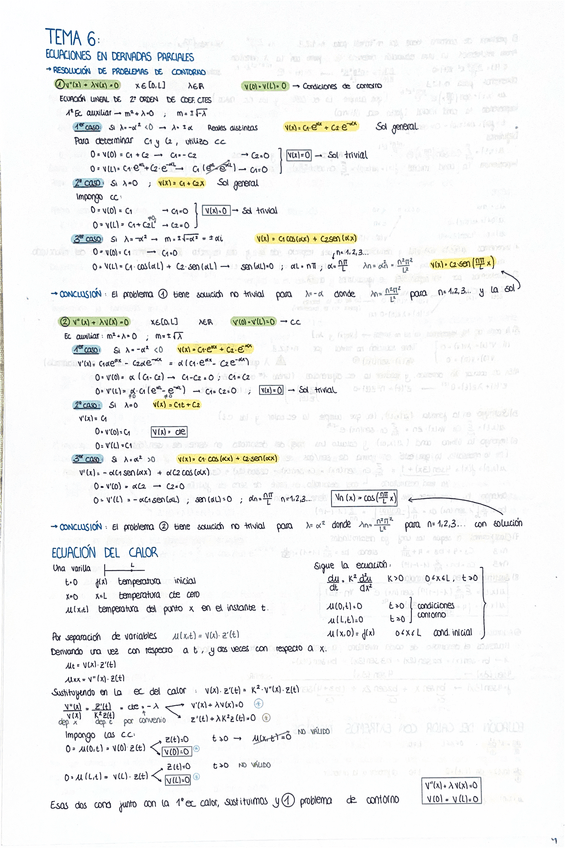 TEMA 6:
ECUACIONES EN DERIVADAS PARCIALES
→ RESOLUCIÓN DE PROBLEMAS DE CONTORNO
① V''(x) + λV(x) = 0 x∈[0,L] λ∈R V(0) = V(L) = 0 → Condiciones de contorno
ECUACIÓN LINEAL DE 2º ORDEN DE COEF. CTES
1º Ec auxiliar → m² + λ = 0 ; m = ±√-λ
1er caso Si λ = -α² < 0 → λ = ±α Reales distintas V(x) = C1·e^αx + C2·e^-αx Sol general
Para determinar C1 y C2, utilizo CC
0 = V(0) = C1 + C2 → C1 = -C2 → C2 = 0
0 = V(L) = C1·e^αL + C2·e^-αL → C1(e^αL - e^-αL) → C1 = 0 V(x) = 0 → Sol trivial
2º caso Si λ = 0 ; V(x) = C1 + C2x Sol general
Impongo CC:
0 = V(0) = C1 → C1 = 0 V(x) = 0 → Sol trivial
0 = V(L) = C1 + C2L → C2 = 0
3er caso Si λ = α² → m = ±√-α² = ±αi V(x) = C1 cos(αx) + C2 sen(αx)
0 = V(0) = C1 → C1 = 0 n = 1,2,3...
0 = V(L) = C1·cos(αL) + C2·sen(αL) → sen(αL) = 0 ; αL = nπ ; α = nπ/L λn = αn² = n²π²/L² V(x) = C2·sen(nπ/L x)
→ CONCLUSIÓN: El problema ① tiene solución no trivial para λ = α donde λn = n²π²/L² para n = 1,2,3... y la sol
② V''(x) + λV(x) = 0 x∈[0,L] λ∈R V'(0) = V'(L) = 0 → CC
Ec auxiliar: m² + λ = 0 ; m = ±√λ
1er caso: Si λ = -α² < 0 V(x) = C1·e^αx + C2·e^-αx
V'(x) = C1αe^αx - C2αe^-αx = α(C1·e^αx - C2e^-αx)
0 = V'(0) = α(C1 - C2) → C1 - C2 = 0 ; C1 = C2
0 = V'(L) = α·C1(e^αL - e^-αL) → C1 = C2 = 0 ; V(x) = 0 → Sol trivial
2º caso: Si λ = 0 V(x) = C1x + C2
V'(x) = C1
0 = V'(0) = C1 V(x) = cte
0 = V'(L) = C1
3er caso: Si λ = α² > 0 V(x) = C1 cos(αx) + C2 sen(αx)
V'(x) = -αC1 sen(αx) + αC2 cos(αx)
0 = V'(0) = αC2 → C2 = 0
0 = V'(L) = -αC1 sen(αL) ; sen(αL) = 0 ; αn = nπ/L n = 1,2,3... Vn(x) = cos(nπ/L x)
→ CONCLUSIÓN: El problema ② tiene solución no trivial para λ = α² donde λn = n²π²/L² para n = 1,2,3... con solución
ECUACIÓN DEL CALOR
Una varilla L Sigue la ecuación:
t = 0 f(x) temperatura inicial du/dt = K² d²u/dx² K > 0 0 < x < L t > 0
x = 0 x = L temperatura de cero
μ(x,t) temperatura del punto x en el instante t. μ(0,t) = 0 t ≥ 0 condiciones
μ(L,t) = 0 t ≥ 0 contorno
Por separación de variables μ(x,t) = V(x)·z(t) μ(x,0) = f(x) 0 < x < L cond. inicial
Derivando una vez con respecto a t, y dos veces con respecto a x.
μt = V(x)·z'(t)
μxx = V''(x)·z(t)
Sustituyendo en la ec del calor: V(x)·z'(t) = K²·V''(x)·z(t)
V''(x)/V(x) = z'(t)/K²z(t) = cte = -λ V''(x) + λV(x) = 0
dep x dep t por convenio z'(t) + λK²z(t) = 0
Impongo las CC:
0 = μ(0,t) = V(0)·z(t) z(t) = 0 t > 0 → μ(x,t) = 0 NO VÁLIDO
V(0) = 0
0 = μ(L,t) = V(L)·z(t) z(t) = 0 t > 0 NO VÁLIDO
V(L) = 0
Esas dos cond junto con la 1º ec calor, sustituimos y ① problema de contorno V''(x) + λV(x) = 0
V(0) = V(L) = 0